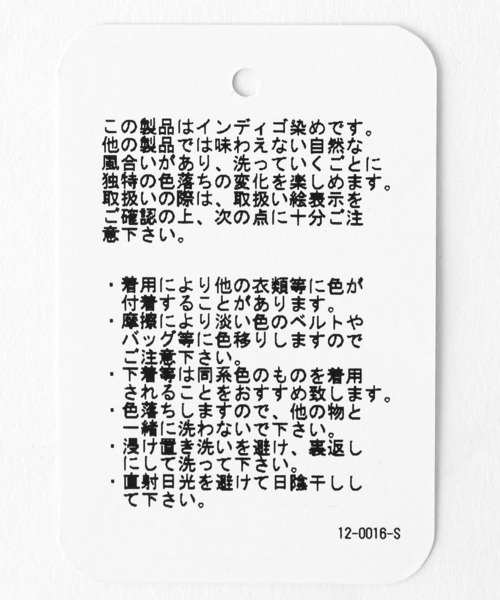 この製品はインディゴ染めです。
他の製品では味わえない自然な
風合いがあり、洗っていくごとに
独特の色落ちの変化を楽しめます。
取扱いの際は、取扱い絵表示を
ご確認の上、次の点に十分ご注
意下さい。
・着用により他の衣類等に色が
付着することがあります。
・摩擦により淡い色のベルトや
バッグ等に色移りしますので
ご注意下さい。
・下着等は同系色のものを着用
されることをおすすめ致します。
・色落ちしますので、他の物と
一緒に洗わないで下さい。
・浸け置き洗いを避け、裏返し
にして洗って下さい。
・直射日光を避けて日陰干しし
て下さい。
12-0016-S